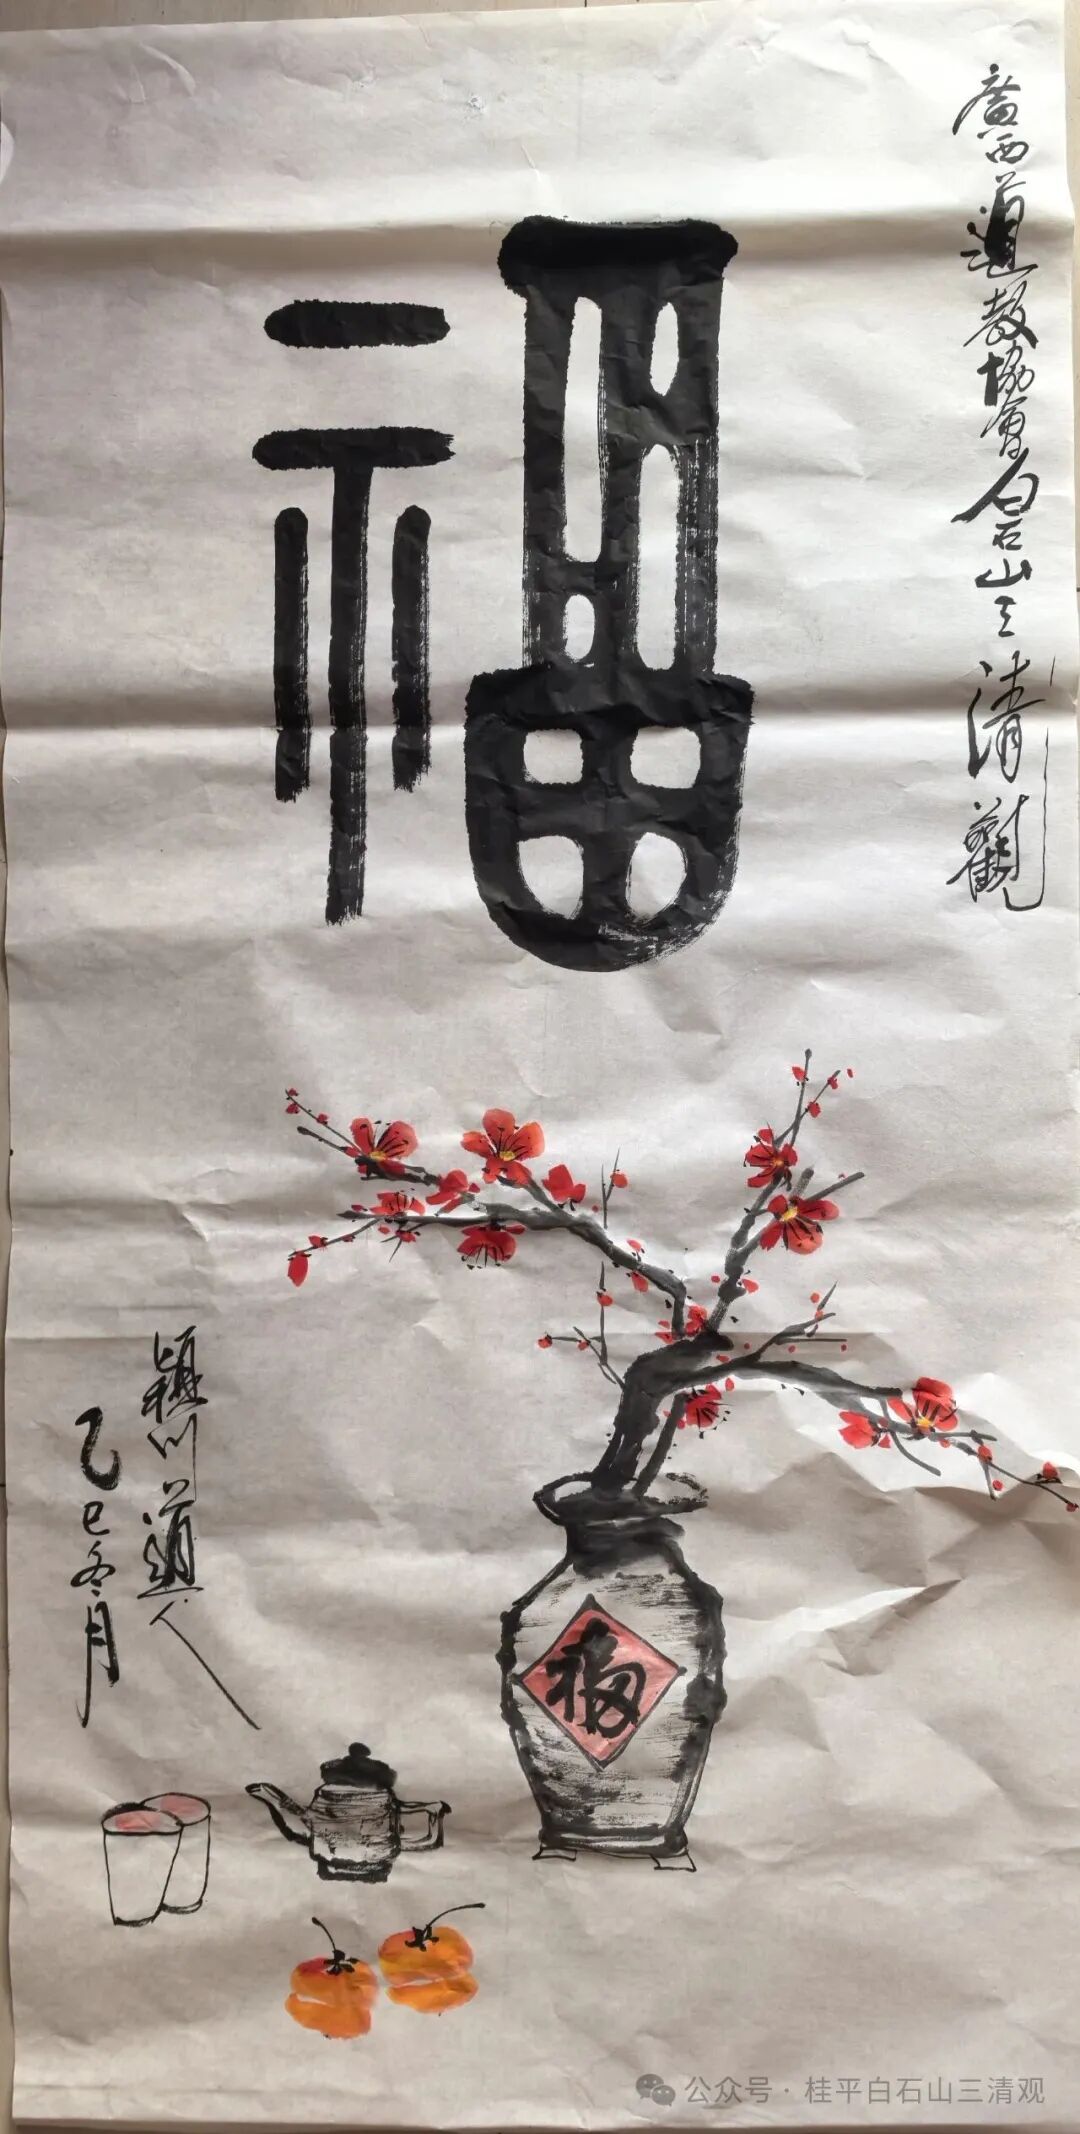 廣西道教協會白石山三清觀
福
穎川道人
乙巳冬月
福
公众号·桂平白石山三清观